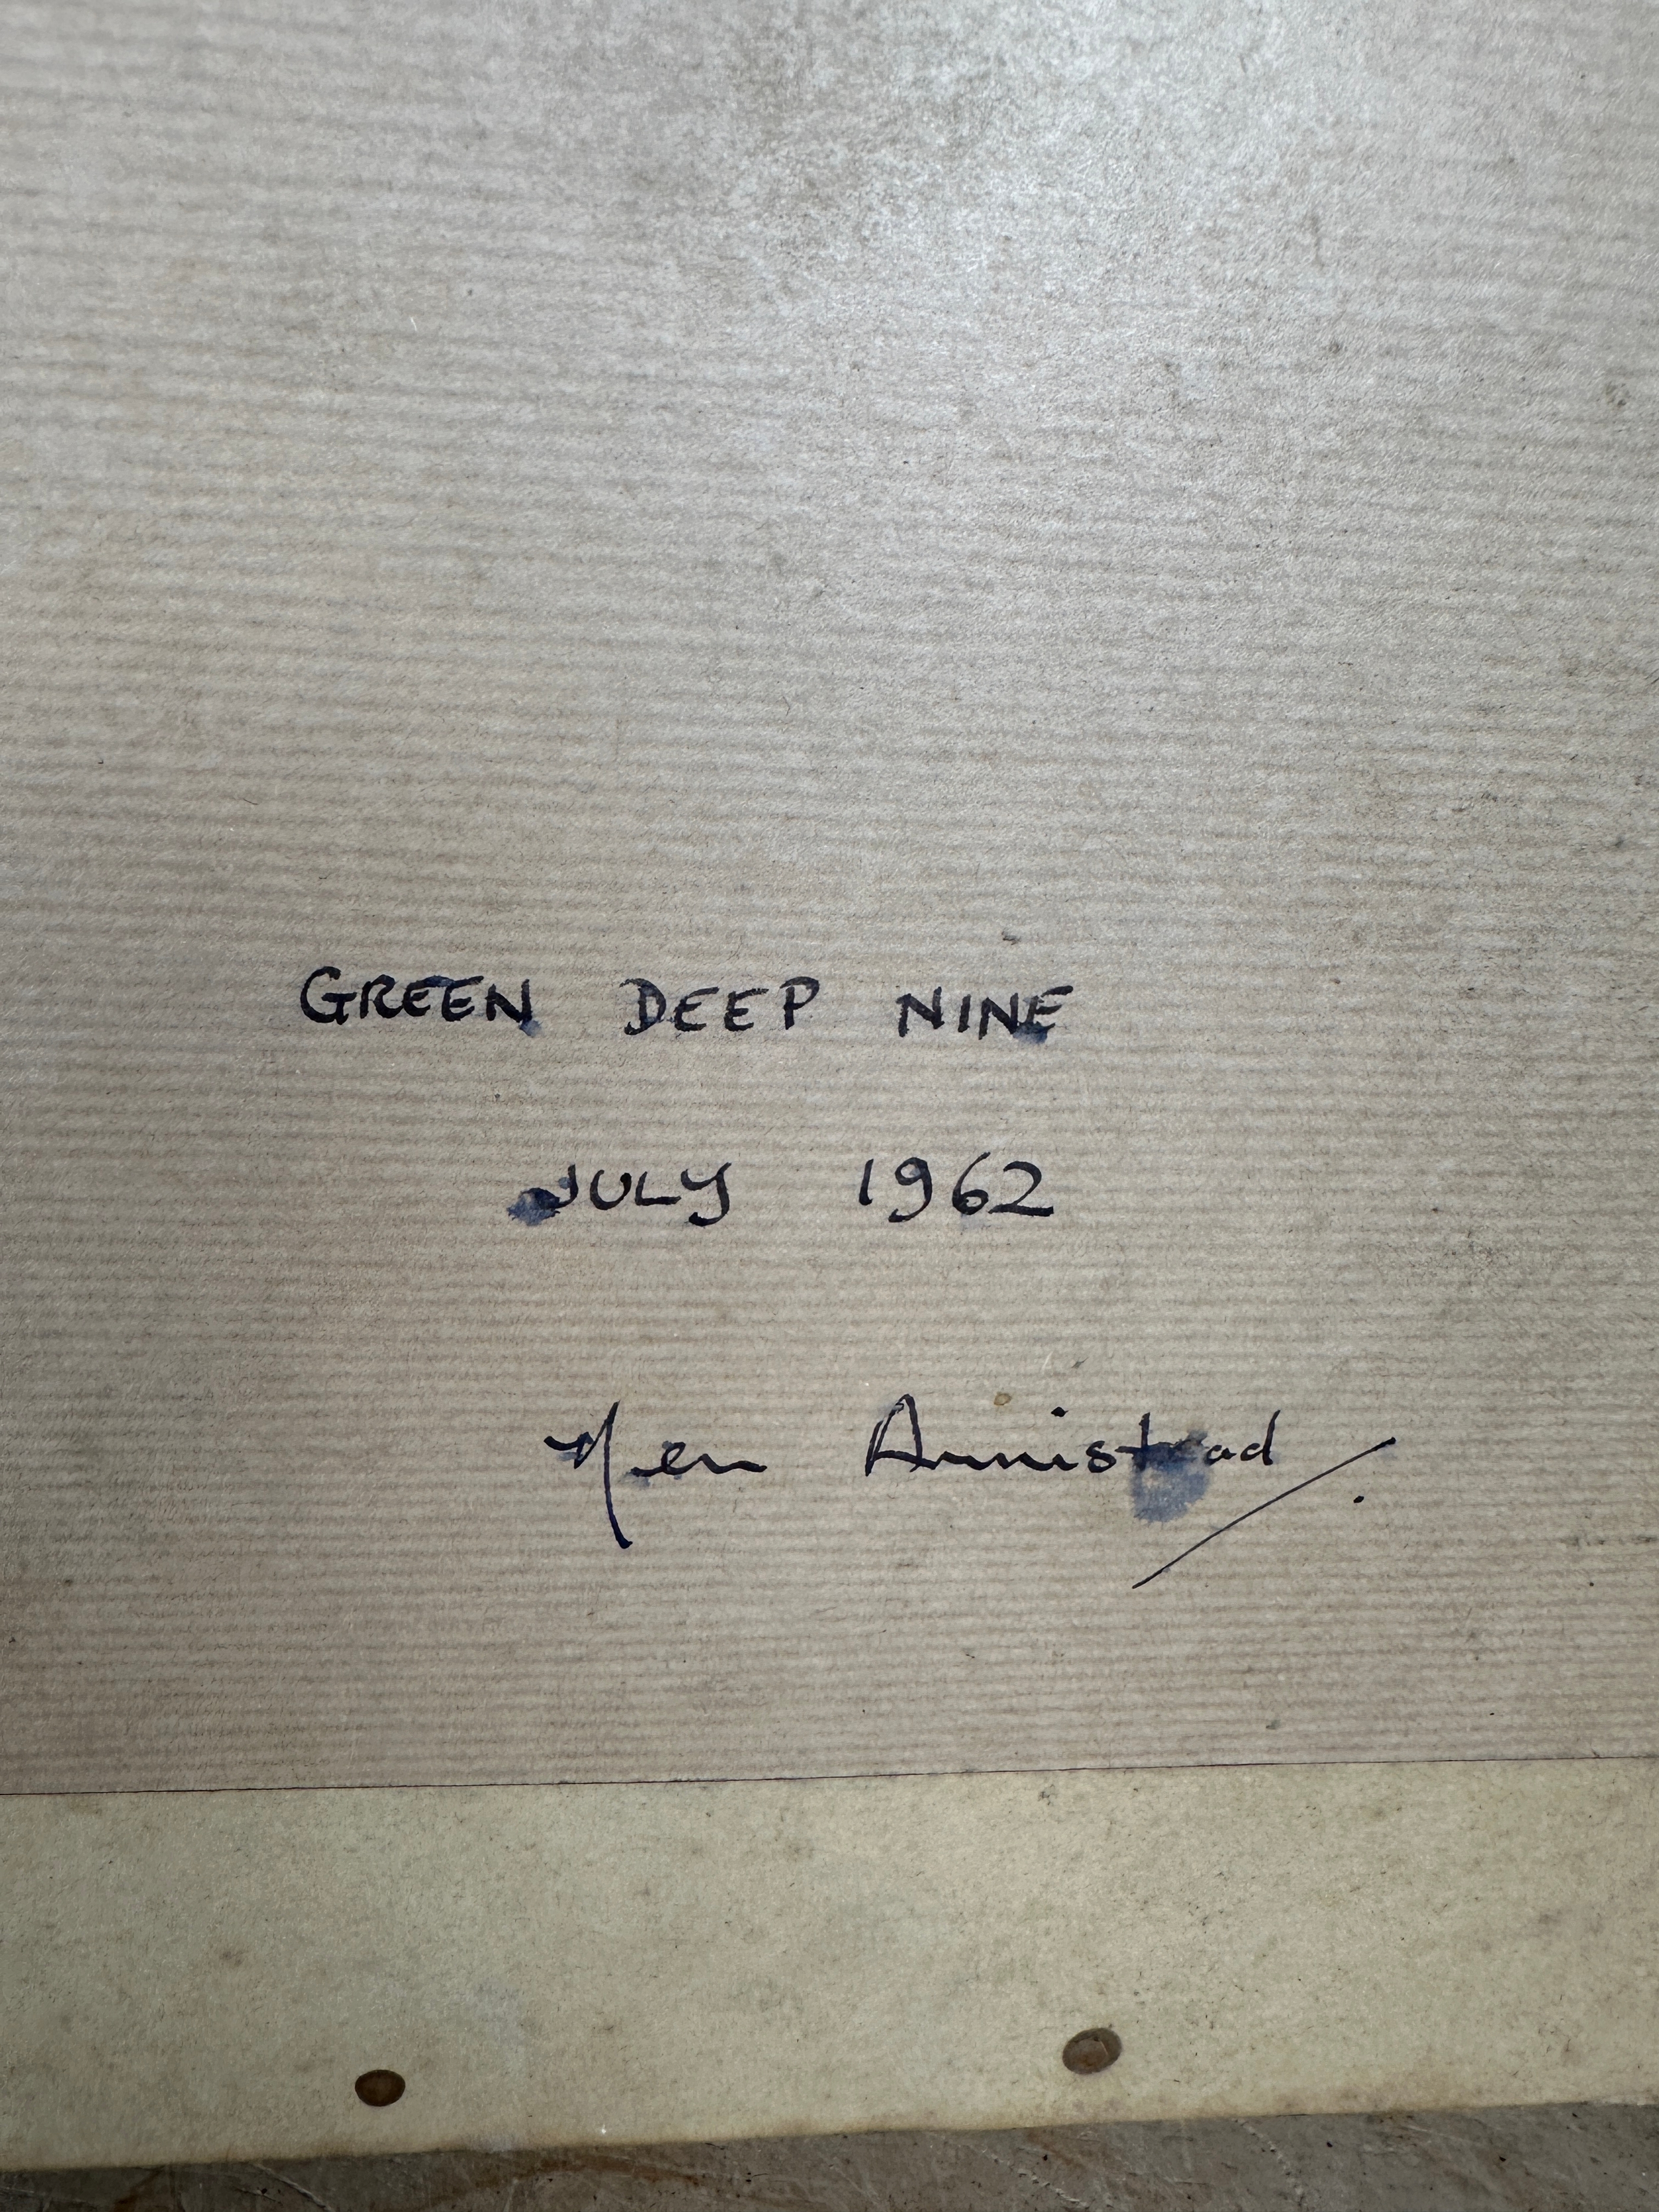 GREEN DEEP NINE
JULY 1962
Ken Armistead